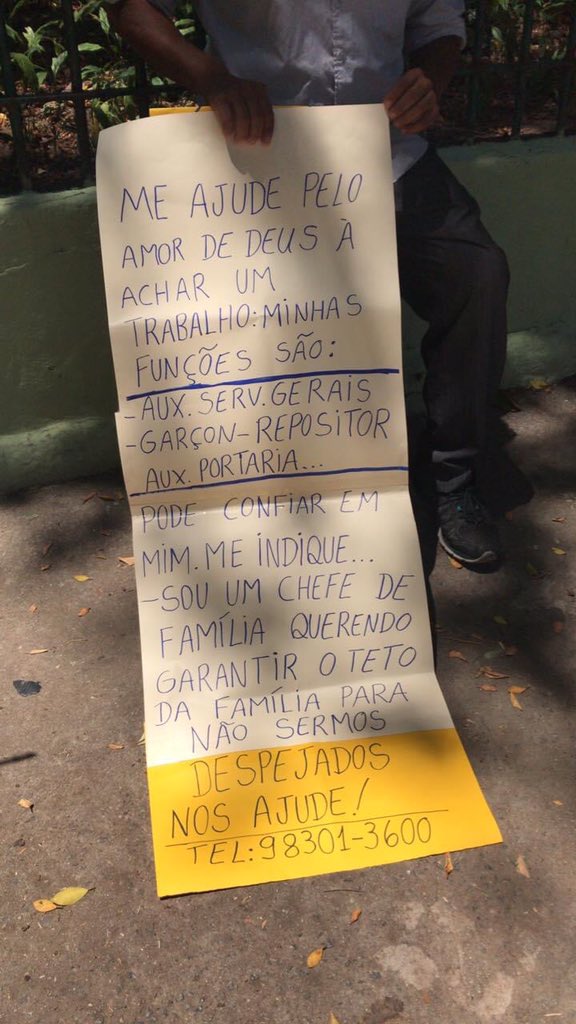 ME AJUDE PELO
AMOR DE DEUS À
ACHAR UM
TRABALHO: MINHAS
FUNÇÕES SÃO:
-AUX. SERV. GERAIS
-GARÇON-REPOSITOR
AUX. PORTARIA...
PODE CONFIAR EM
MIM. ME INDIQUE...
-SOU UM CHEFE DE
FAMÍLIA QUERENDO
GARANTIR O TETO
DA FAMÍLIA PARA
NÃO SERMOS
DESPEJADOS
NOS AJUDE!
TEL: 98301-3600